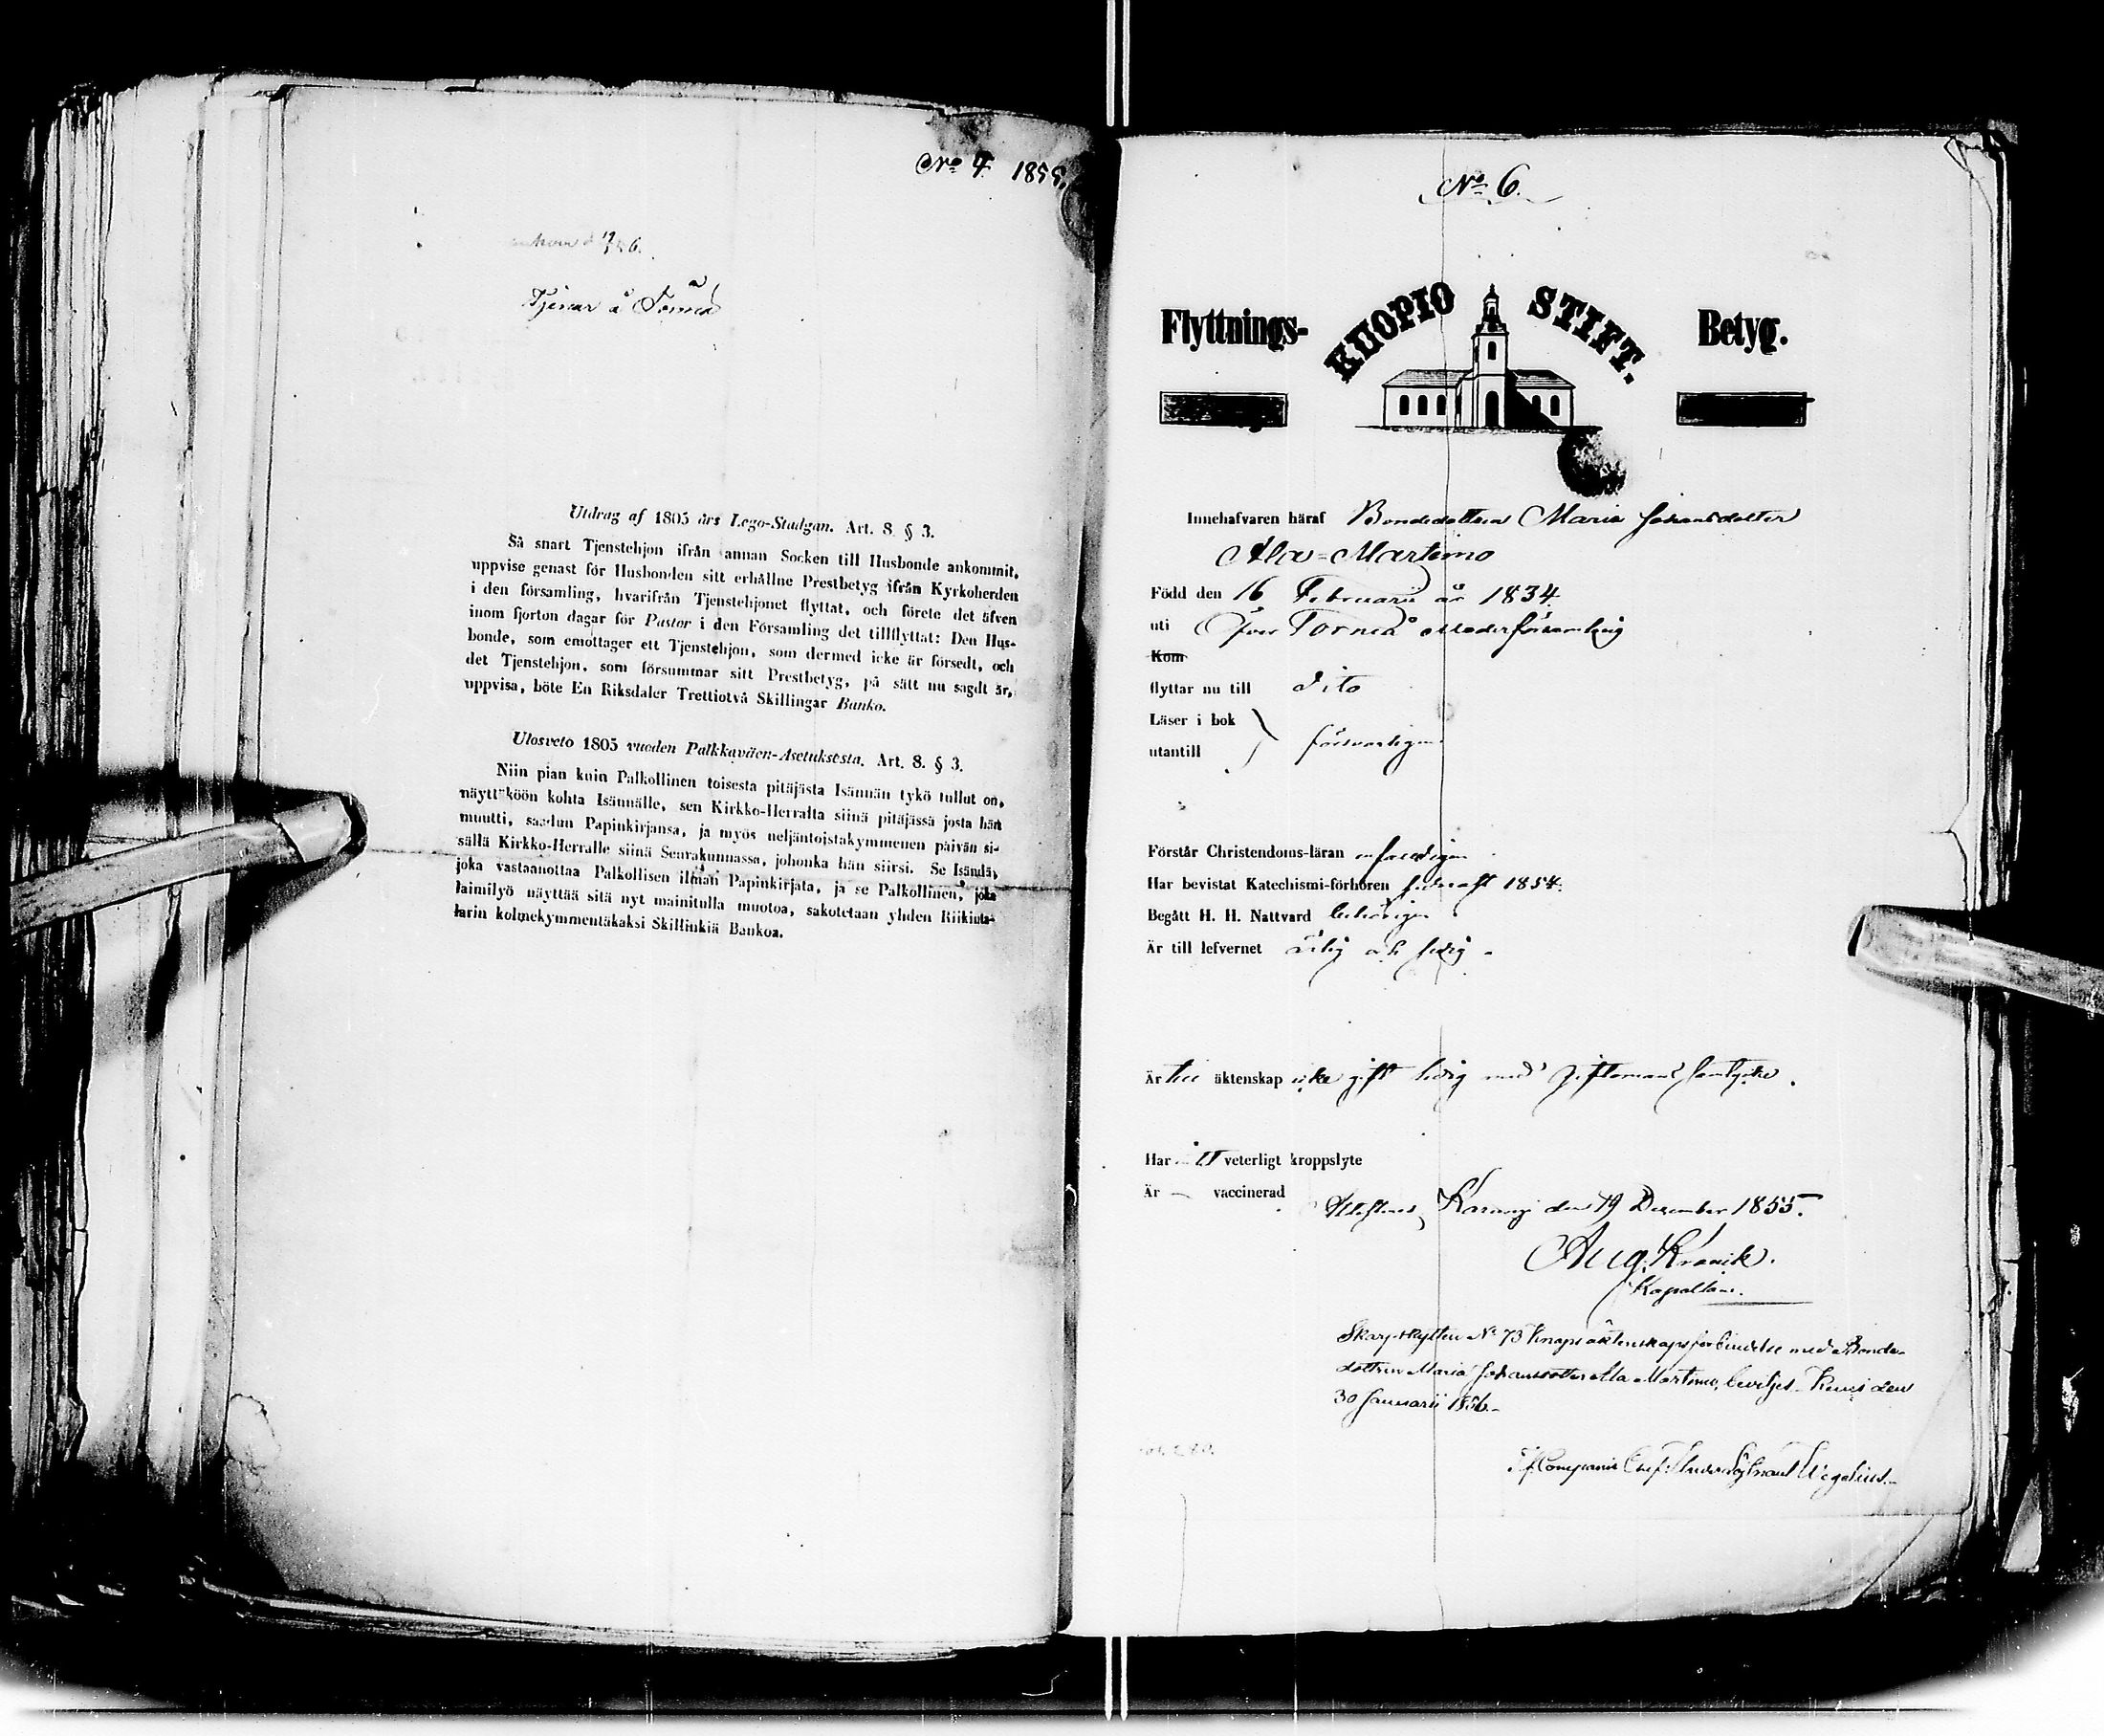 No 4. 1855.
Tjenar å Torneå
Utdrag af 1805 års Lego-Stadgan. Art. 8 § 3.
Så snart Tjenstehjon ifrån annan Socken till Husbonde ankommit,
uppvise genast för Husbonden sitt erhållne Prestbetyg ifrån Kyrkoherden
i den församling, hvarifrån Tjenstehjonet flyttat, och förete det äfven
inom fjorton dagar för Pastor i den Församling det tillflyttat: Den Hus-
bonde, som emottager ett Tjenstehjon, som dermed icke är försedt, och
det Tjenstehjon, som försummar sitt Prestbetyg, på sätt nu sagdt är,
uppvisa, böte En Riksdaler Trettiotvå Skillingar Banko.
Ulosveto 1805 vuoden Palkkaväen-Asetuksesta. Art. 8. § 3.
Niin pian kuin Palkollinen toisesta pitäjästä Isännän tykö tullut on,
näyttäköön kohta Isännälle, sen Kirkko-Herralta siinä pitäjässä josta hän
muutti, saadun Papinkirjansa, ja myös neljäntoistakymmenen päivän si-
sällä Kirkko-Herralle siinä Seurakunnassa, johonka hän siirsi. Se Isäntä,
joka vastaanottaa Palkollisen ilman Papinkirjata, ja se Palkollinen, joka
laimilyö näyttää sitä nyt mainitulla muotoa, sakotetaan yhden Riikinta-
larin kolmekymmentäkaksi Skillinkiä Bankoa.
No 6.
Flyttnings- KUOPIO STIFT. Betyg.
Innehafvaren häraf Bondedottren Maria Johansdotter
Ala-Martimo
Född den 16 Februarii år 1834.
uti Öfver Torneå Moderförsamling
Kom
flyttar nu till dito
Läser i bok
utantill försvarligen
Förstår Christendoms-läran enfaldigen
Har bevistat Katechismi-förhören sednast 1854.
Begått H. H. Nattvard behörigen
Är till lefvernet ärlig och ledig
Är till äktenskap icke gift ledig med Giftomans samtycke.
Har ett veterligt kroppslyte
Är vaccinerad
Karungi den 19 December 1855.
Aug. Kranck.
Kapellan.
Skarpskytten No 73 Knaps äktenskapsförbindelse med Bonde-
dottren Maria Johansdotter Ala Martimo, beviljes. Kemi den
30 Januarii 1856.
Companie Chef: Wegelius.